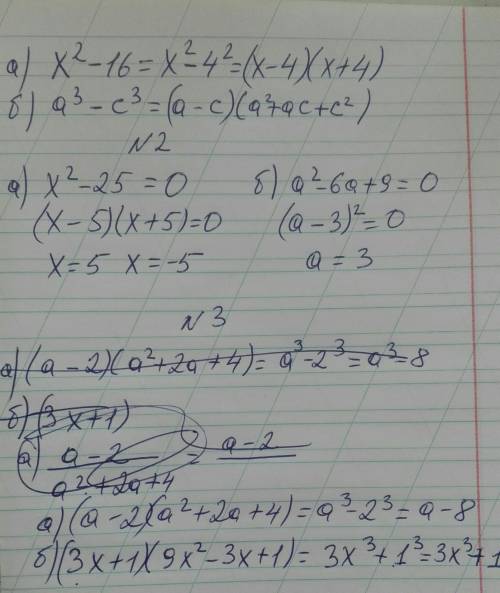 а) x² - 16 = x² - 4² = (x-4)(x+4)
б) a³ - c³ = (a-c)(a²+ac+c²)
N2
а) x² - 25 = 0 б) a² - 6a + 9 = 0
(x-5)(x+5)=0 (a-3)² = 0
x=5 x=-5 a = 3
N3
а) (a-2)(a²+2a+4) = a³-2³ = a³=8
б) (3x+1)
а) a-2 = a-2
a²+2a+4
а) (a-2)(a²+2a+4) = a³-2³ = a-8
б) (3x+1)(9x²-3x+1) = 3x³+1³ = 3x³+1